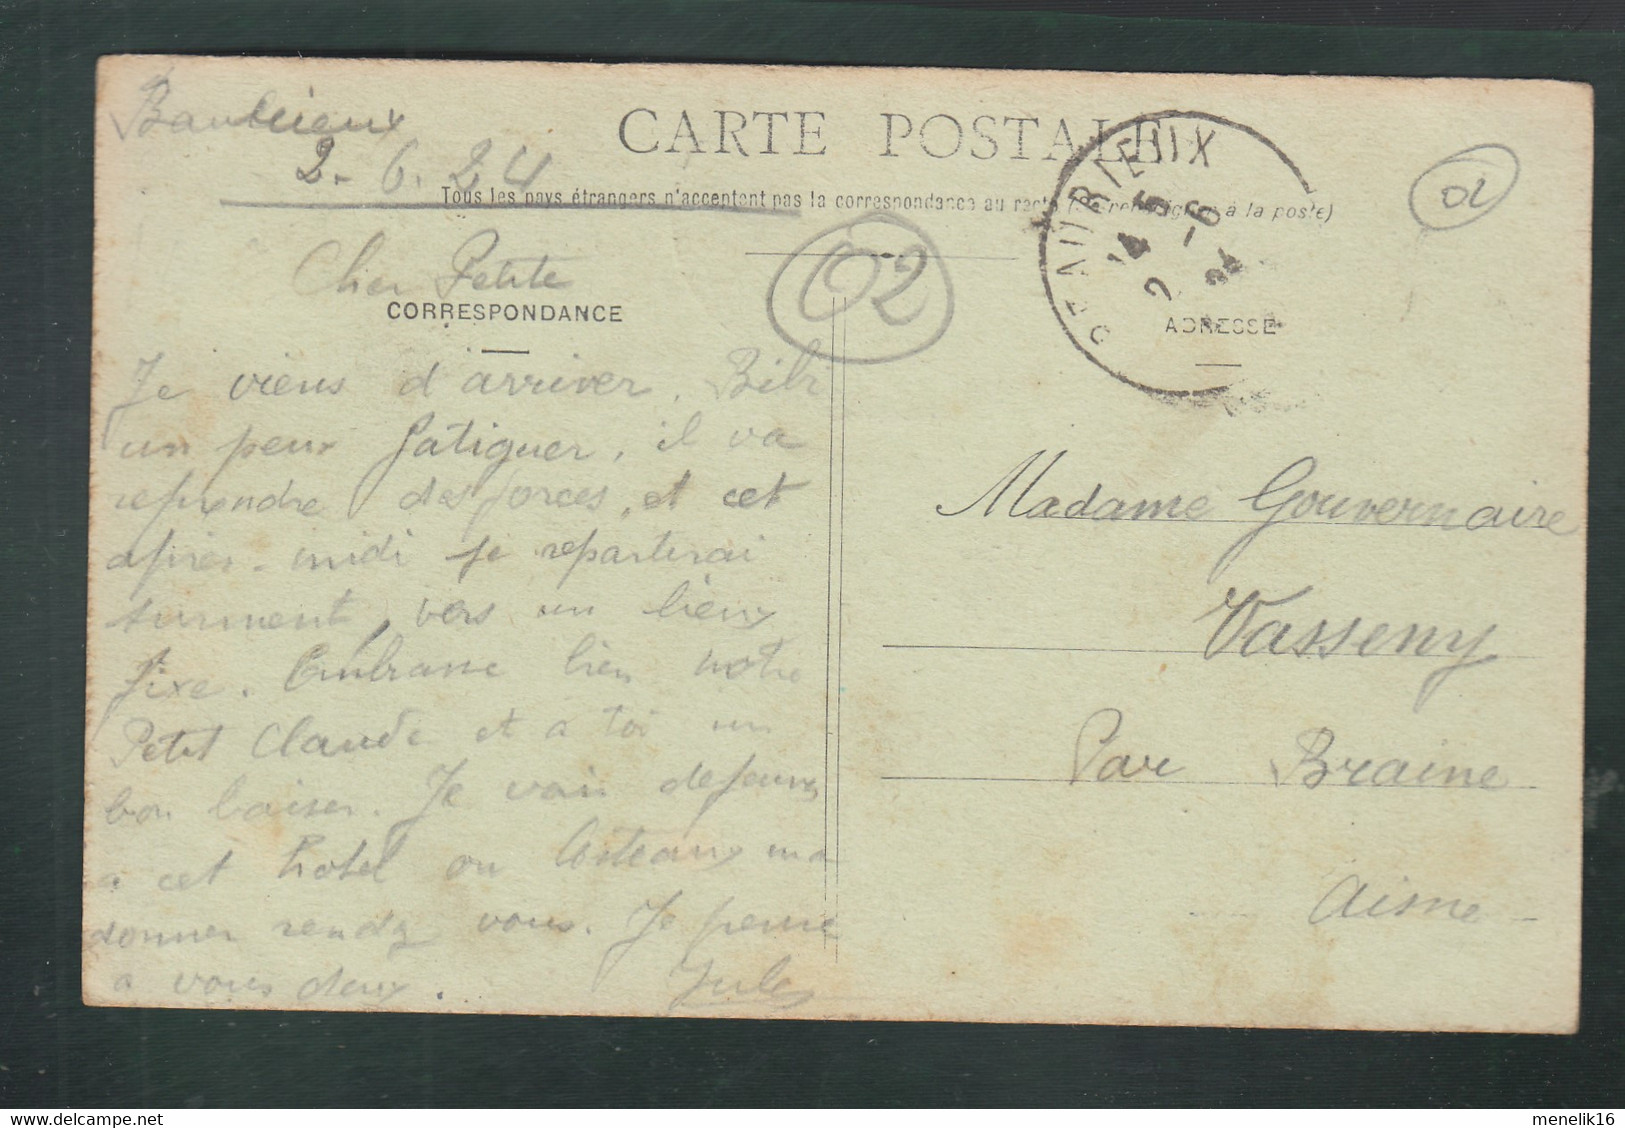 Baurieux
2-6.24
CARTE POSTALE
Tous les pays étrangers n'acceptent pas la correspondance au recto (se renseigner à la poste)
Cher Petite
CORRESPONDANCE
Je viens d'arriver.
un peux fatiguer, il va
reprendre des forces, et cet
après-midi je repartirai
surment, vers un lieux
fixe. Embrasse bien notre
Petit Claude et à toi un
bon baiser. Je vais dejeuner
a cet hotel ou Costeaux ma
donner rendez vous. Je pense
a vous deux. Jules
02
BEAURIEUX
14 5
2 -6
24
02
ADRESSE
Madame Gouvernaire
Vasseny
Par Braine
Aisne
menelik16